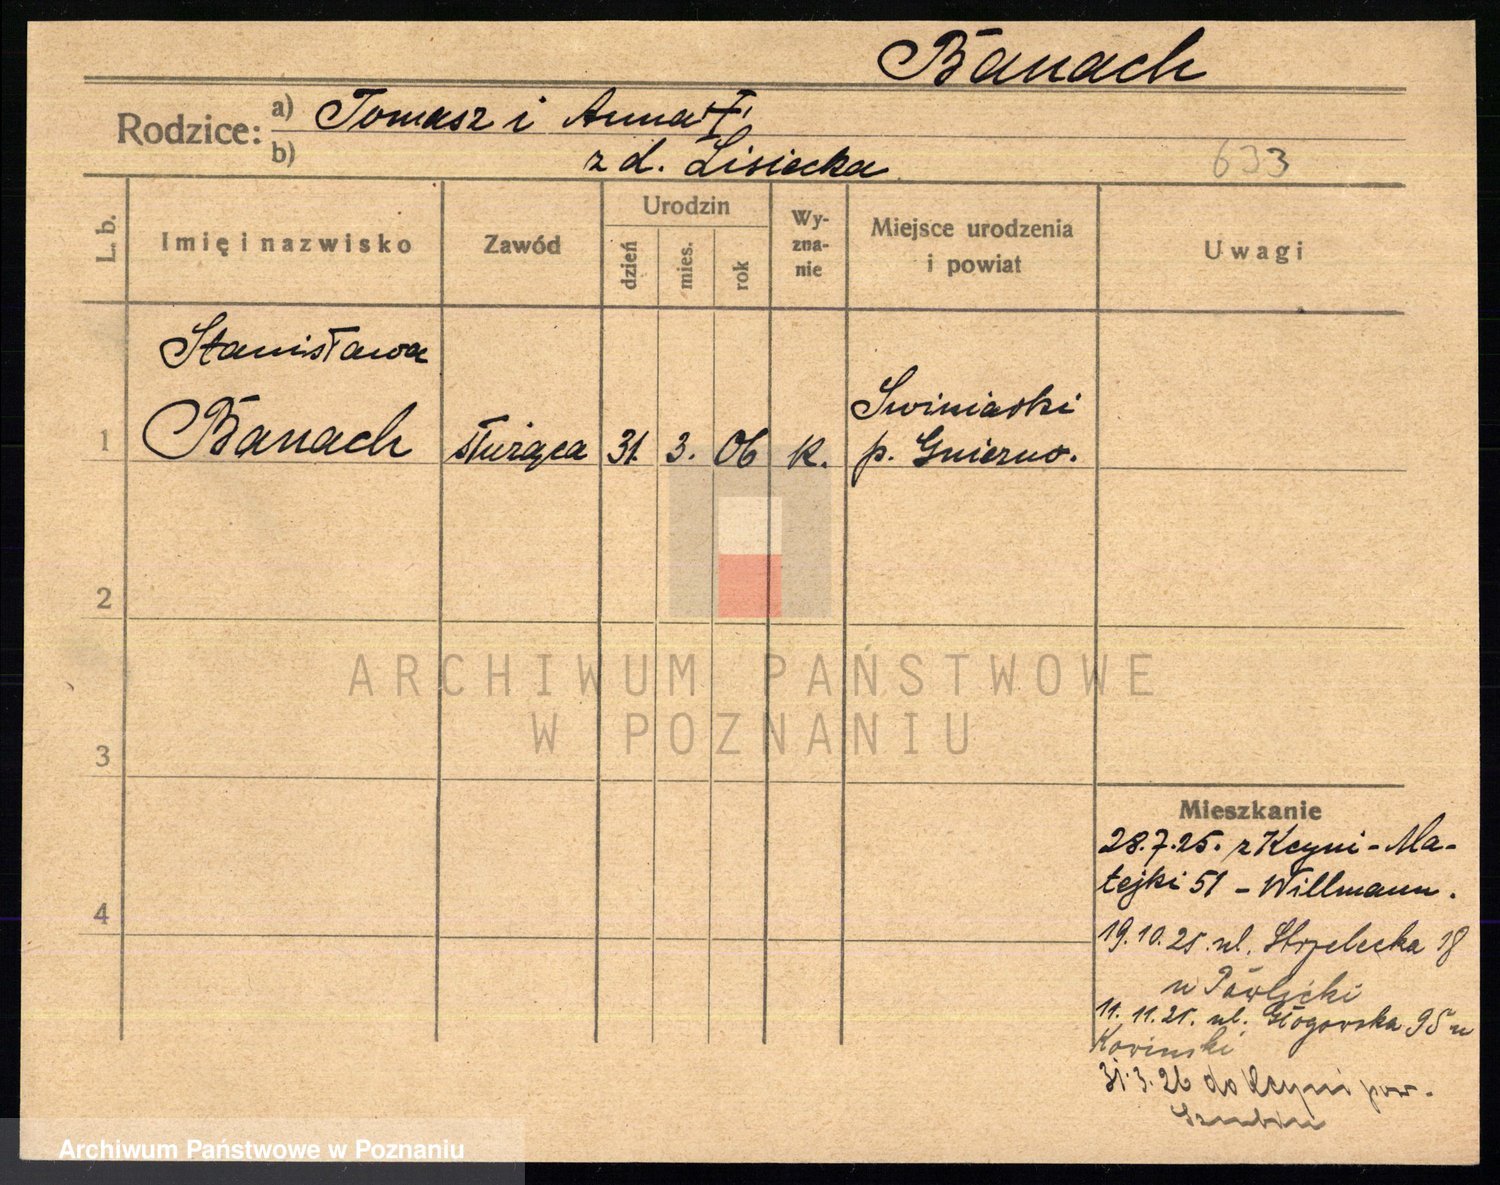 Banach
Rodzice: a) Tomasz i Anna
b) z d. Lisiecka
633
L. b.
Imię i nazwisko
Zawód
Urodzin
dzień
mies.
rok
Wy-
zna-
nie
Miejsce urodzenia
i powiat
Uwagi
Stanisława
1 Banach służąca 31. 3. 06 k. Swiniarki
p. Gniezno.
2
3
4
ARCHIWUM PAŃSTWOWE
W POZNANIU
Mieszkanie
28.7.25. z Kcyni - Ma-
tejki 51 - Willmann.
19.10.25. ul. Strzelecka 18
u
11.11.25. ul. Głogowska 95 u
31.3.26 do Kcyni pow.
Szubin
Archiwum Państwowe w Poznaniu